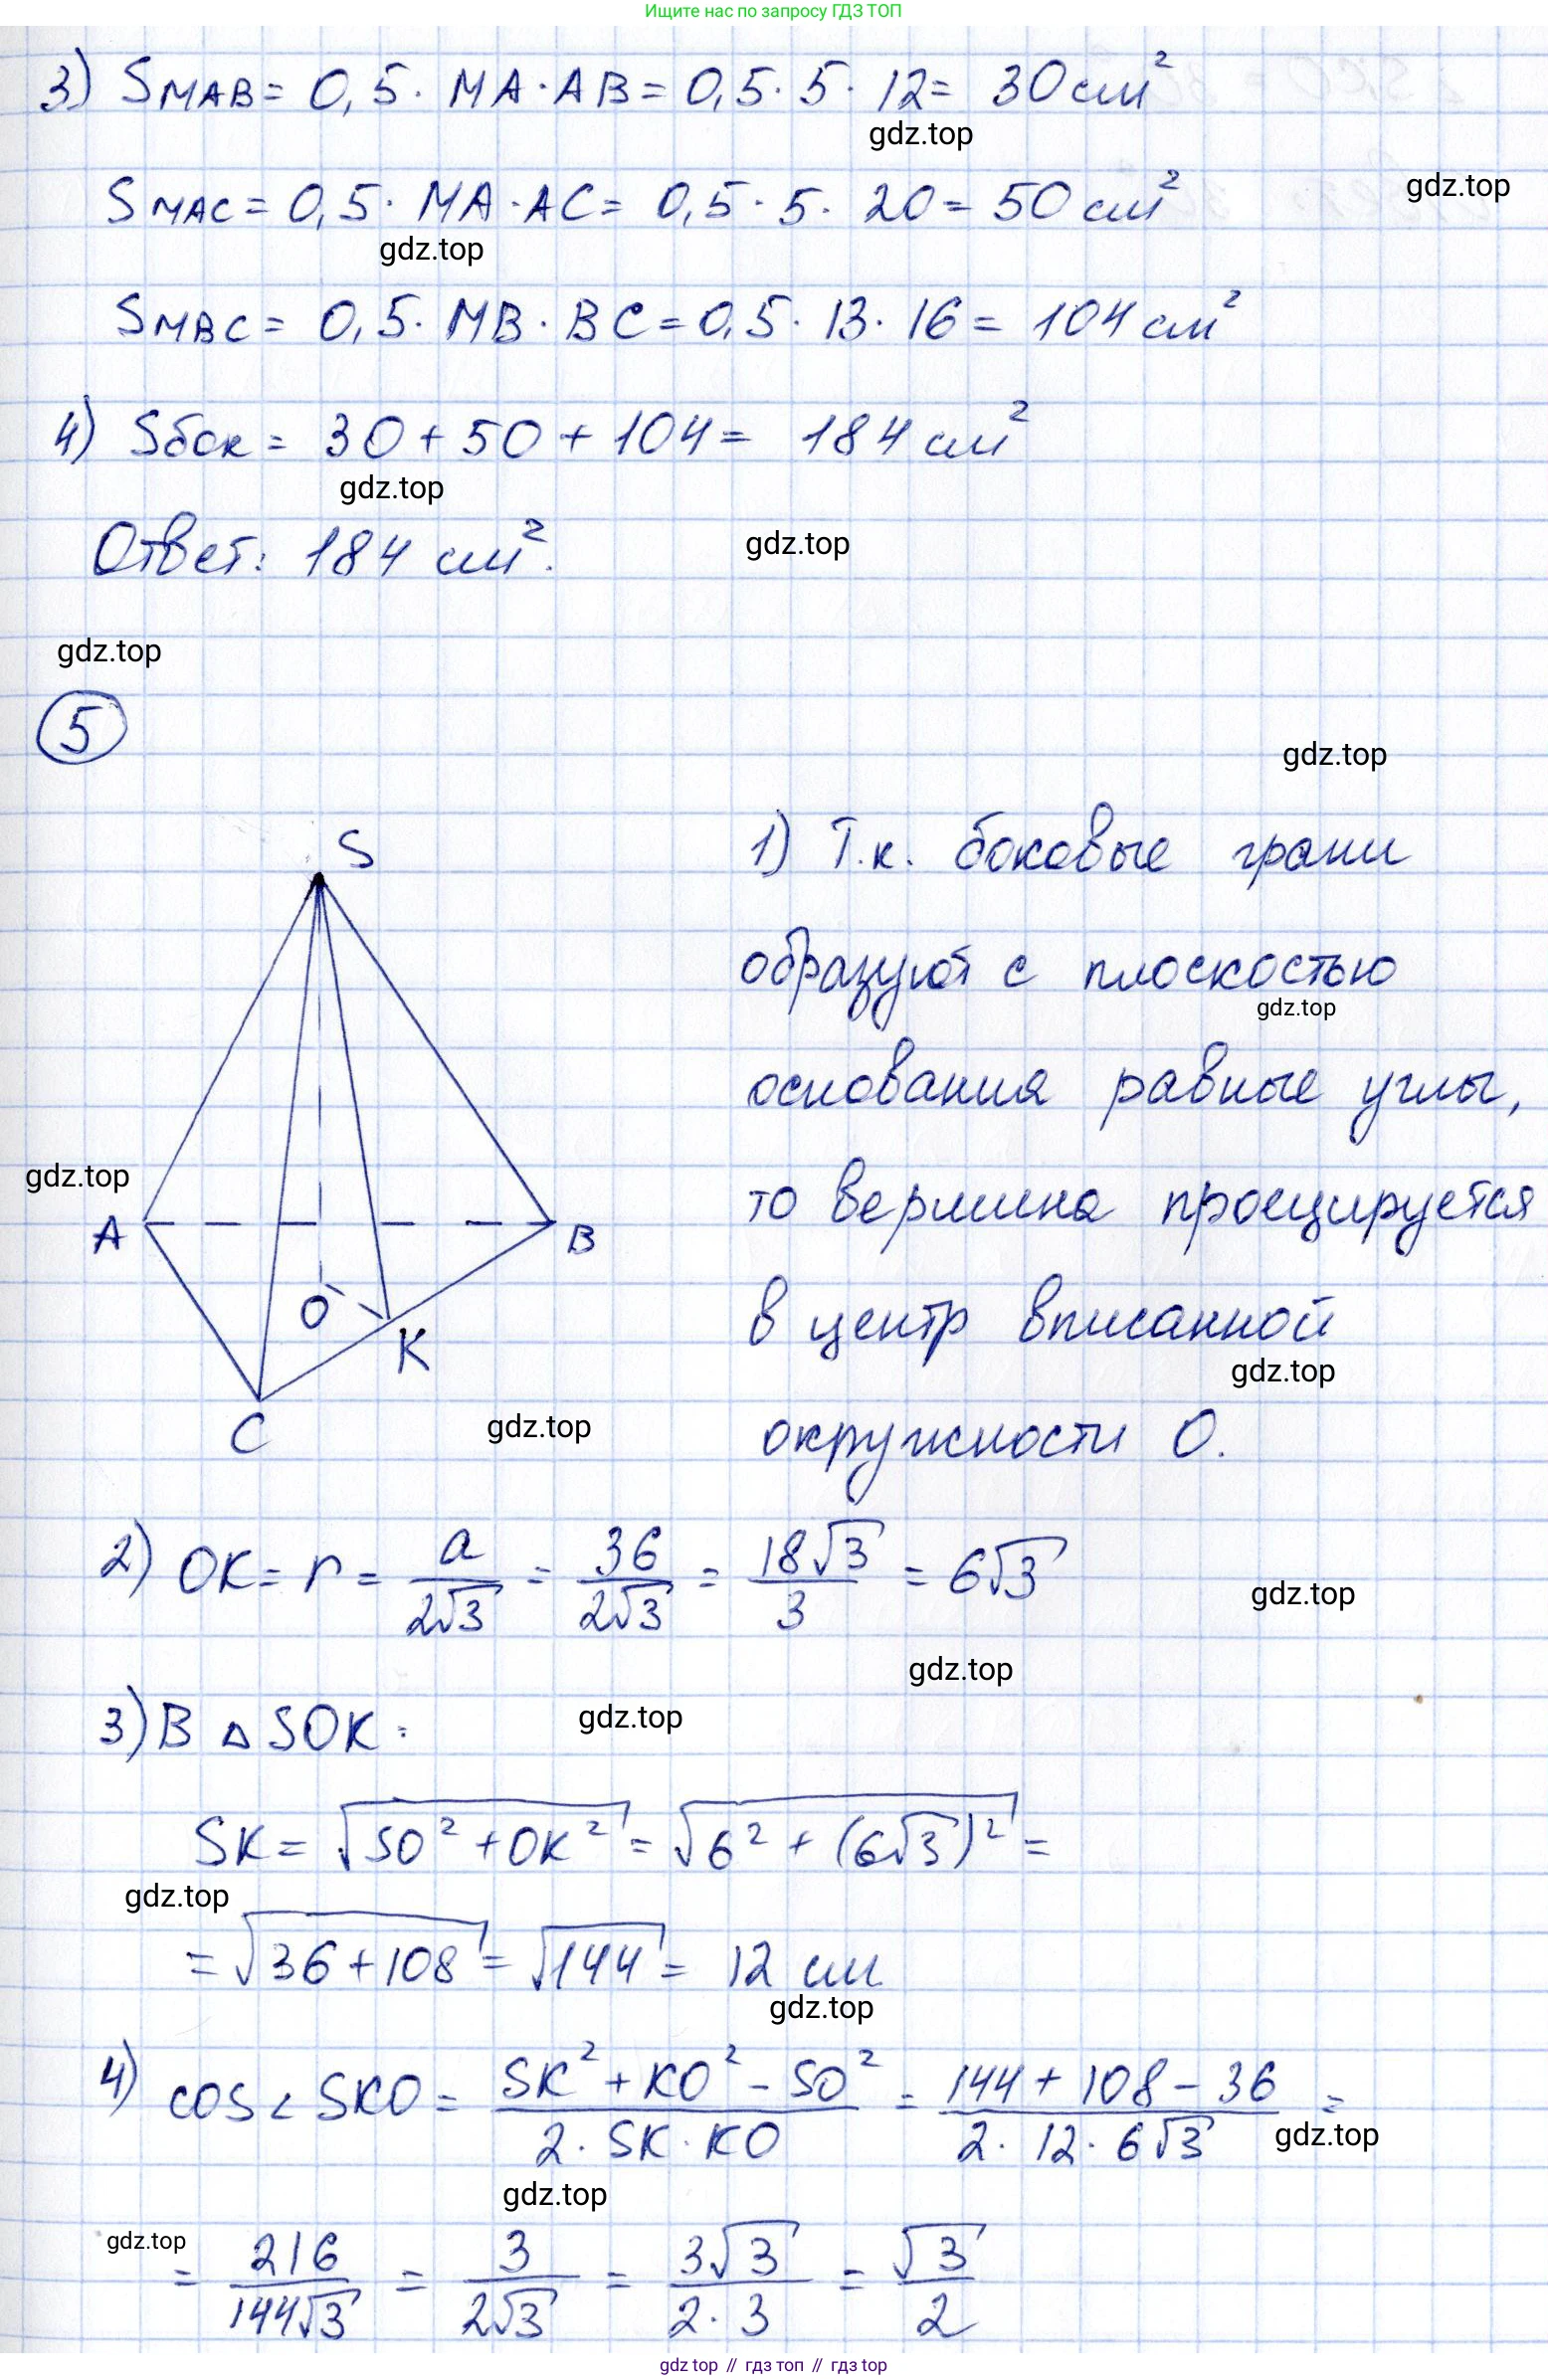 Ищите нас по запросу ГДЗ ТОП
3) SMAB = 0,5 · MA · AB = 0,5 · 5 · 12 = 30 см²
gdz.top
SMAC = 0,5 · MA · AC = 0,5 · 5 · 20 = 50 см²
gdz.top
gdz.top
SMBC = 0,5 · MB · BC = 0,5 · 13 · 16 = 104 см²
4) Sбок = 30 + 50 + 104 = 184 см²
gdz.top
Ответ: 184 см².
gdz.top
gdz.top
5
gdz.top
S
1) Т.к. боковые грани
образуют с плоскостью
gdz.top
основания равные углы,
gdz.top
то вершина проецируется
A
B
O
K
в центр вписанной
gdz.top
C
gdz.top
окружности O.
2) OK = r = a/(2√3) = 36/(2√3) = 18√3/3 = 6√3
gdz.top
gdz.top
3) В △ SOK:
gdz.top
SK = √(SO² + OK²) = √(6² + (6√3)²) =
gdz.top
= √(36 + 108) = √144 = 12 см
gdz.top
4) cos ∠ SKO = (SK² + KO² - SO²)/(2 · SK · KO) = (144 + 108 - 36)/(2 · 12 · 6√3) =
gdz.top
gdz.top
gdz.top
= 216/(144√3) = 3/(2√3) = 3√3/(2 · 3) = √3/2
gdz top // гдз топ // гдз top